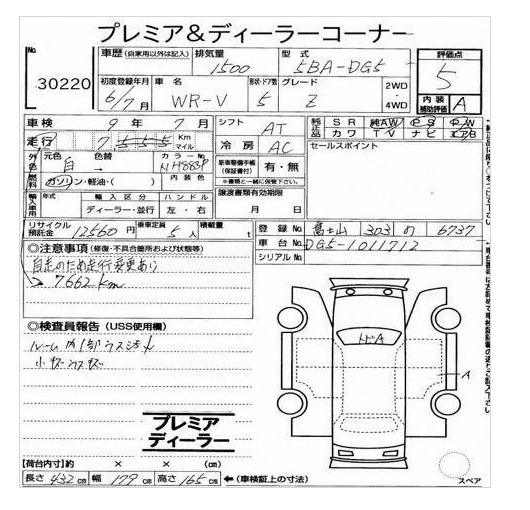 プレミア＆ディーラーコーナー
No. 30220
車歴 (自家用以外は記入) 排気量 1500 型式 5BA-DG5 評価点 5
初度登録年月 6/7月 車名 WR-V 形状・ドア数 5 グレード Z 2WD・4WD 内装補助評価 A
車検 9年7月 シフト AT 純正品 SR 純AW PS PW
走行 7,555 Km マイル 冷房 AC カワ TV ナビ エアB
外色 元色 自 色替 → カラーNo NH883P 新車整備手帳(保証書付) 有・無 セールスポイント
※書類と一緒に保管下さい。
燃料 ガソリン・軽油・( ) 内装色 譲渡書類有効期限
輸入車用 年式 輸入区分 ハンドル 月 日
ディーラー・並行 左・右
リサイクル預託金 12560円 乗車定員 5人 積載量 t 登録No 富士山 303 の 6737
車台No DG5-1011712
シリアルNo
◎注意事項 (修復・不具合箇所および状態等)
自走のため走行変更あり
→ 7662km
◎検査員報告 (USS使用欄)
ルーム内1部ウス汚れ
小キズウスキズ
トビA
A
プレミア
ディーラー
【荷台内寸】約 × × (cm)
長さ 432 cm 幅 179 cm 高さ 165 cm ←(車検証上の寸法) スペア